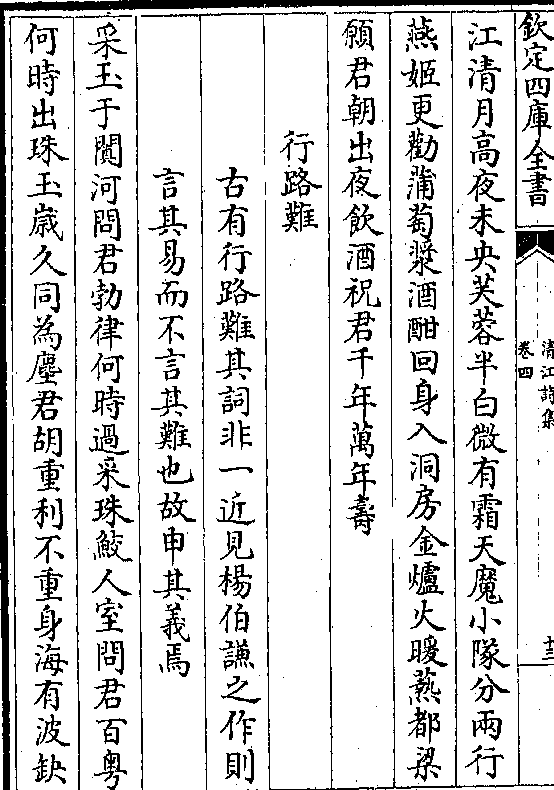 欽定四庫全書
清江詩集
卷四
十三
江清月高夜未央芙蓉半白微有霜天魔小隊分兩行
燕姬更勸蒲萄漿酒酣回身入洞房金爐火暖爇都梁
願君朝出夜飲酒祝君千年萬年壽
行路難
古有行路難其詞非一近見楊伯謙之作則
言其易而不言其難也故申其義焉
采玉于闐河問君勃律何時過采珠鮫人室問君百粤
何時出珠玉歲久同為塵君胡重利不重身海有波缺